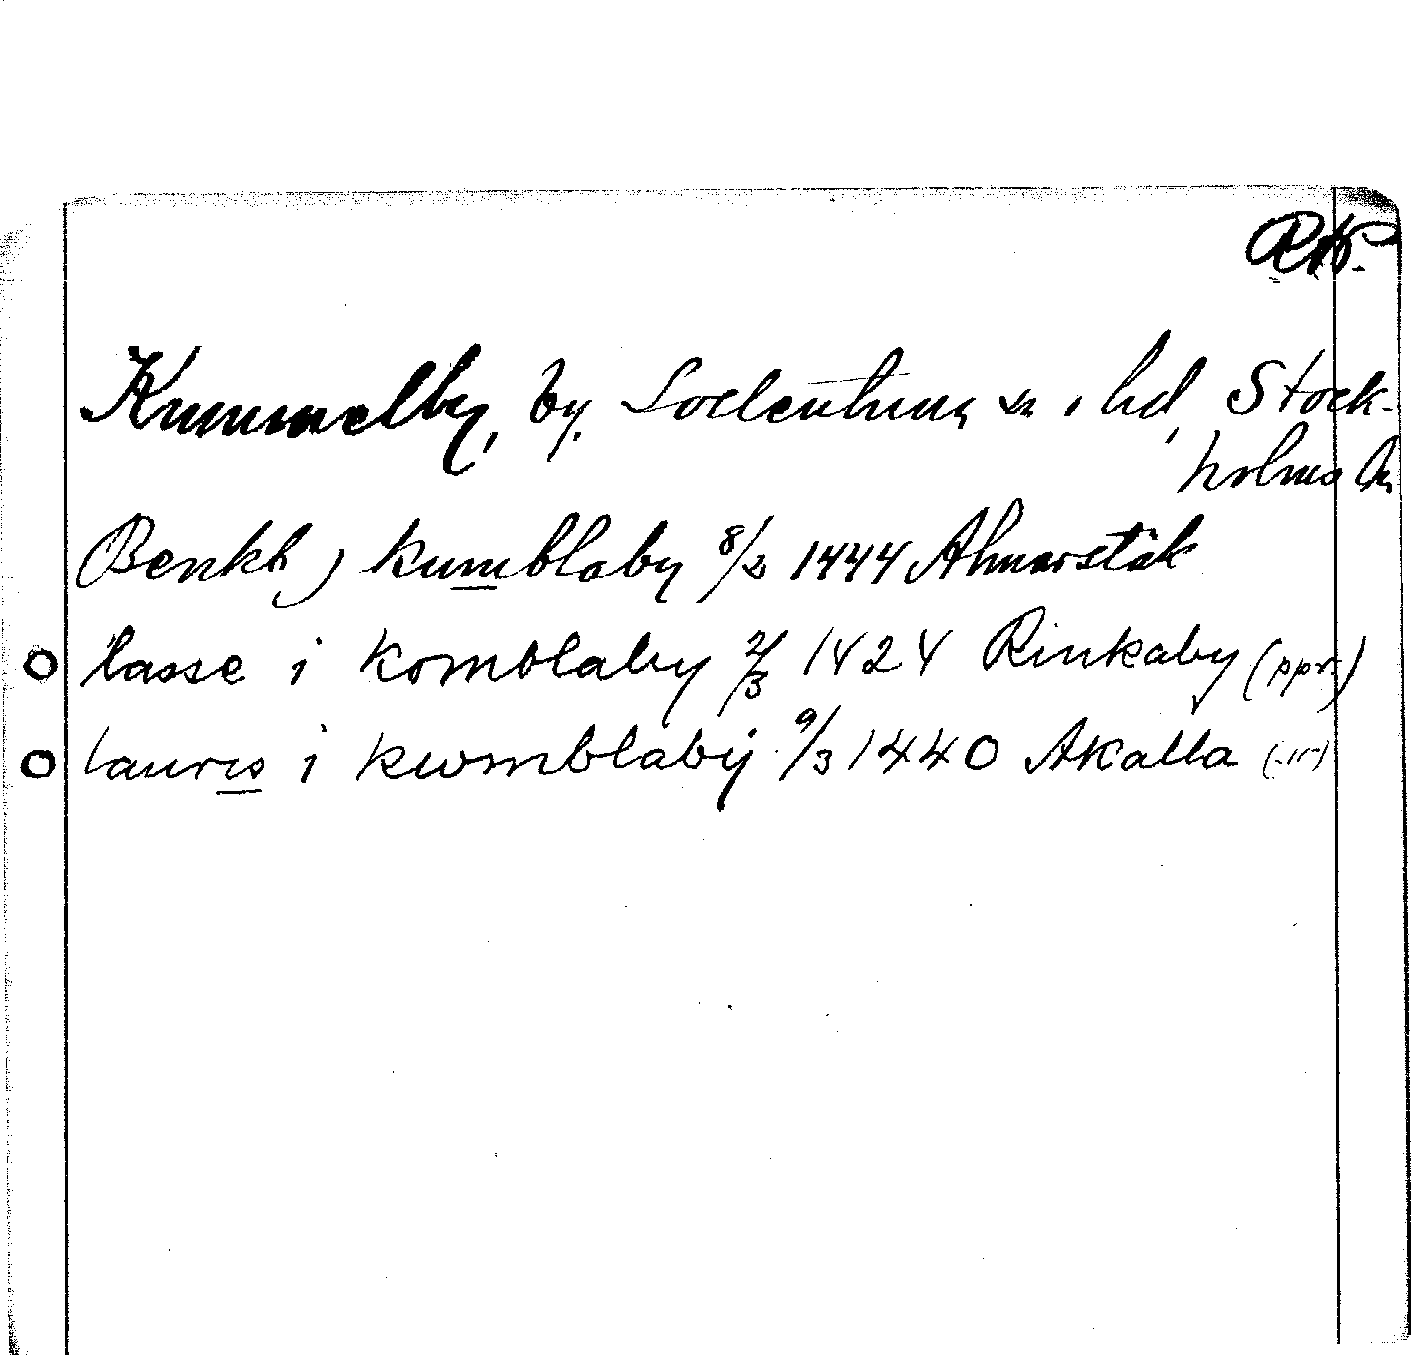 Kummelby, by, Sollentuna sn o hd, Stock-
holms län
Benkt j kumblaby 8/2 1444 Almarstäk
lasse i komblaby 2/3 1424 Rinkaby (ppr.)
lauris i kwmblabÿ 9/3 1440 Akalla (-"-)